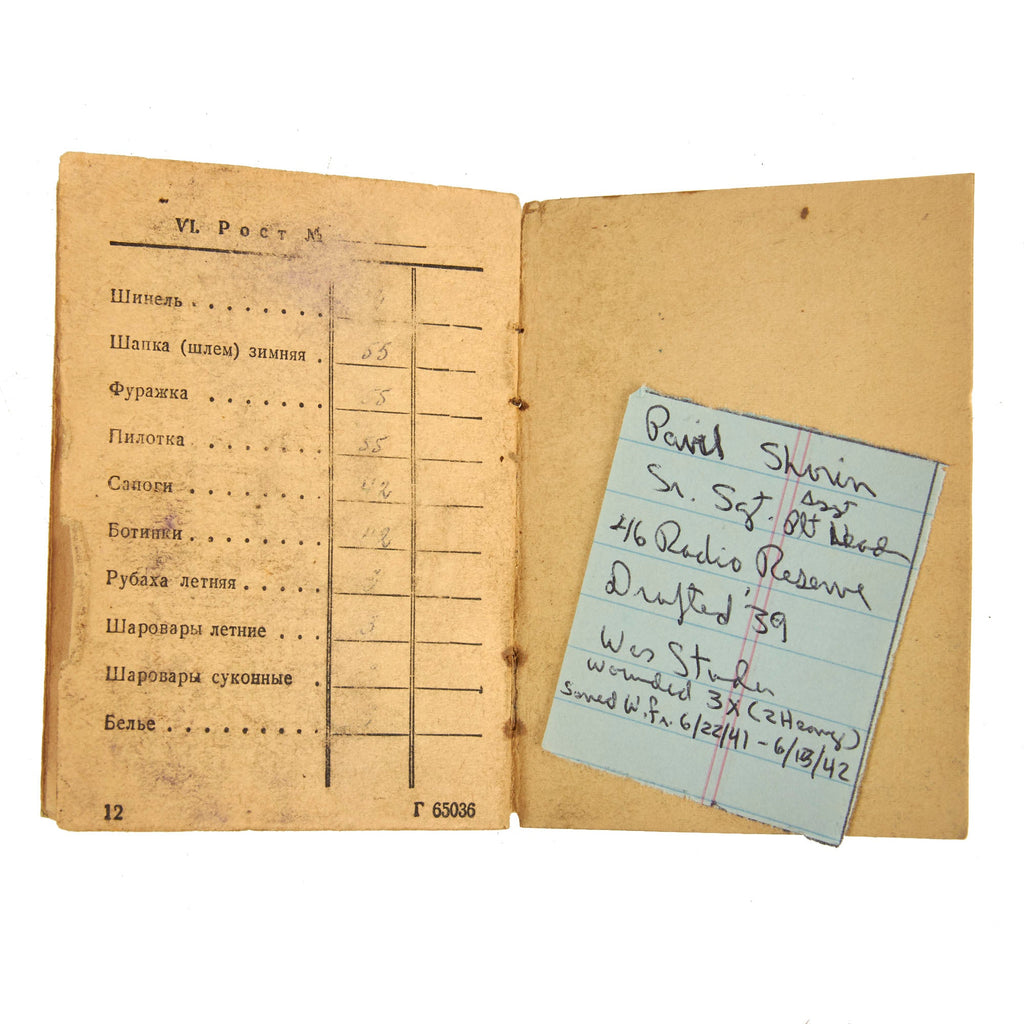 VI. Рост №
Шинель . . . . . . . .
Шапка (шлем) зимняя . 55
Фуражка . . . . . . . 55
Пилотка . . . . . . . 55
Сапоги . . . . . . . . 42
Ботинки . . . . . . . . 42
Рубаха летняя . . . . . 3
Шаровары летние . . . 3
Шаровары суконные .
Белье . . . . . . . . . .
12 Г 65036
Pavel Shorin
Sr. Sgt. Asst
Plt Head
46 Radio Reserve
Drafted '39
Was Studen
wounded 3X (2 Heavy)
Served W.Fr. 6/22/41 - 6/13/42